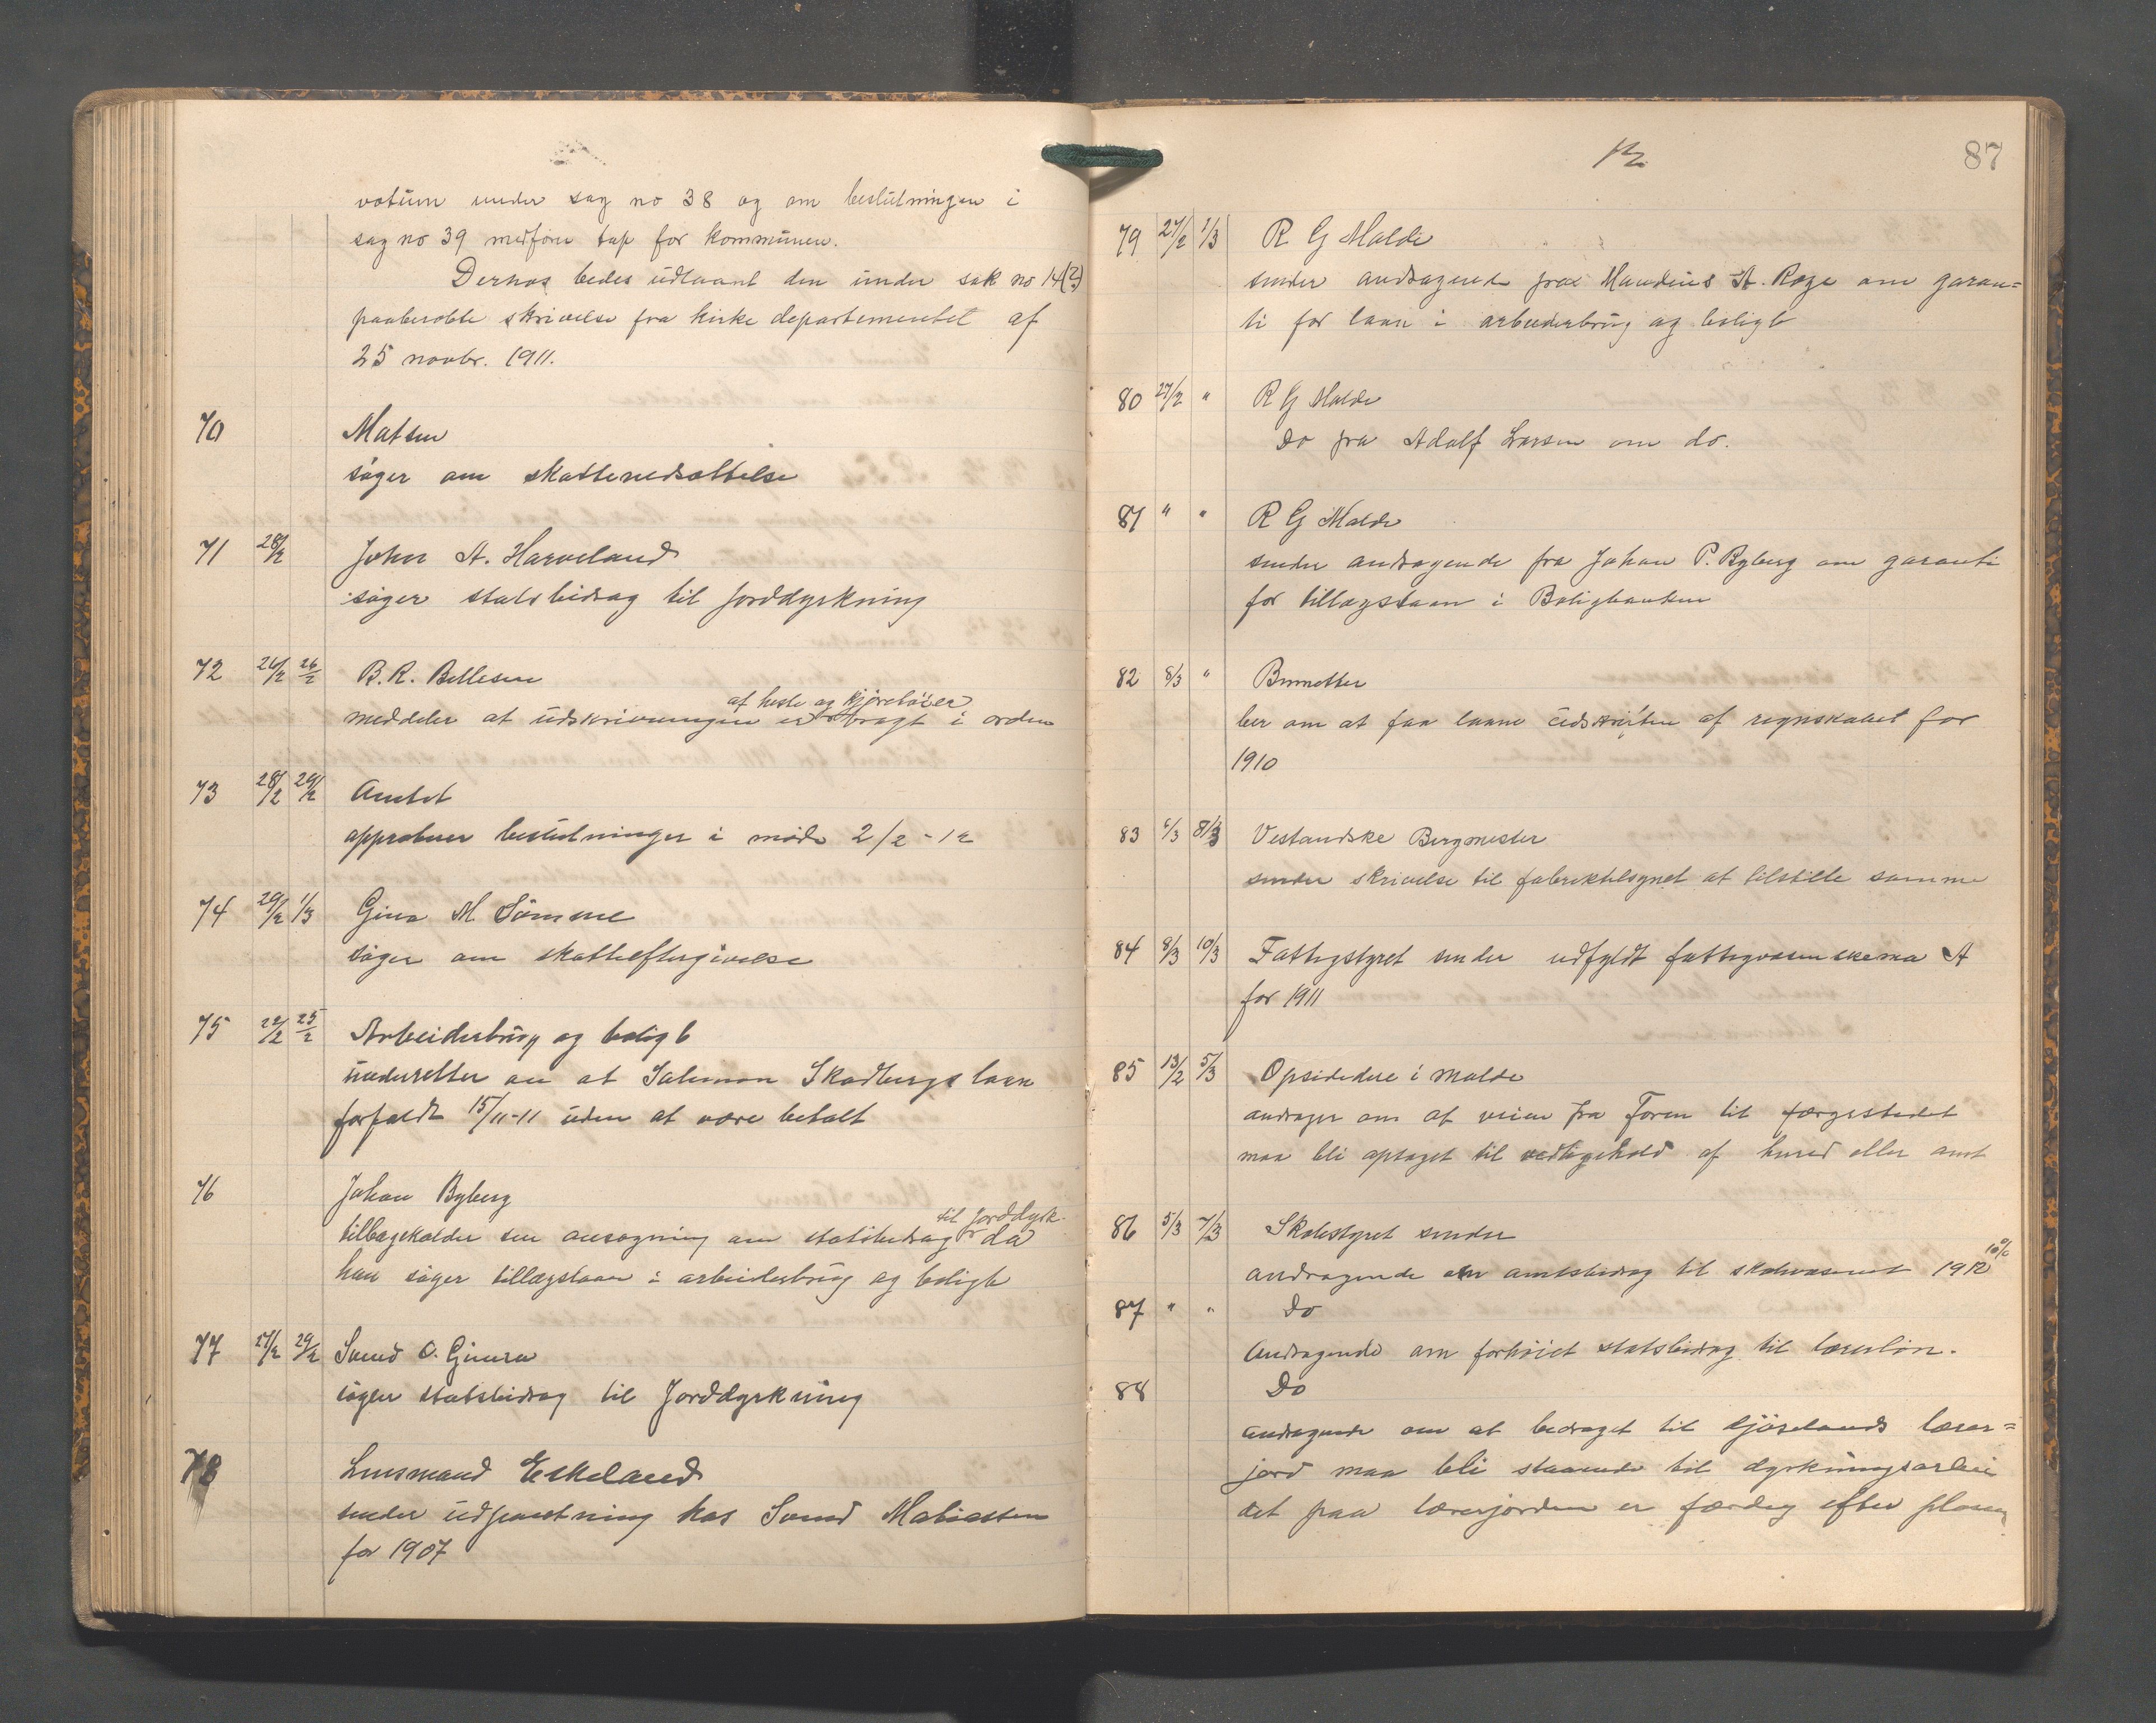 votum under sag no 38 og om beslutningen i
sag no 39 medfører tap for kommunen.
Dernæs bedes udlaant den under sak no 14(?)
paaberobte skrivelse fra kirkedepartementet af
25 novbr. 1911.
70 Matsen
søger om skattenedsættelse
71 28/2 John A. Harveland
søger statsbidrag til Jorddyrkning
72 26/2 26/2 B. R. Bellesen
af heste og kjøretøier
meddeler at udskrivningen er bragt i orden
73 28/2 29/2 Amtet
approberer beslutninger i møde 2/2 - 12
74 29/2 1/3 Gina M. Sømme
søger om skatteeftergivelse
75 22/2 25/2 Arbeiderbrug og boligb
underretter om at Salomon Skadbergs laan
forfaldt 15/11-11 uden at være betalt
76 Johan Byberg
til Jorddyrk.
tilbagekalder sin ansøgning om statsbidrag da
han søger tillægslaan i arbeiderbrug og boligb
77 27/2 29/2 Svend O. Gimra
søger statsbidrag til Jorddyrkning
78 Lensmand Eskeland
sender udpantning hos Svend Matiassen
for 1907
12
87
79 27/2 1/3 R G Malde
sender andragende fra Maudius A. Røge om garan=
ti for laan i arbeiderbrug og boligb
80 27/2 " R G Malde
Do fra Adolf Larsen om do.
81 " " R G Malde
sender andragende fra Johan P. Byberg om garanti
for tillægslaan i Boligbanken
82 8/3 "
ber om at faa laane udskriften af regnskabet for
1910
83 6/3 8/3 Vestlandske Bergmester
sender skrivelse til fabriktilsynet at tilstille samme
84 8/3 10/3 Fattigstyret sender udfyldt fattigvæsenskema A
for 1911
85 13/2 5/3 Opsiddere i Malde
andrager om at veien fra Foren til færgestedet
maa bli optaget til vedligehold af hered eller amt
86 5/3 7/3 Skolestyret sender
andragende om amtsbidrag til skolevæsenet 1912 10%
87 " " Do
Andragende om forhøiet statsbidrag til lærerløn.
88 Do
andragende om at bedraget til Gjøselands lærer=
jord maa bli staaende til dyrkningsarbei
det paa lærerjorden er færdig efter planen